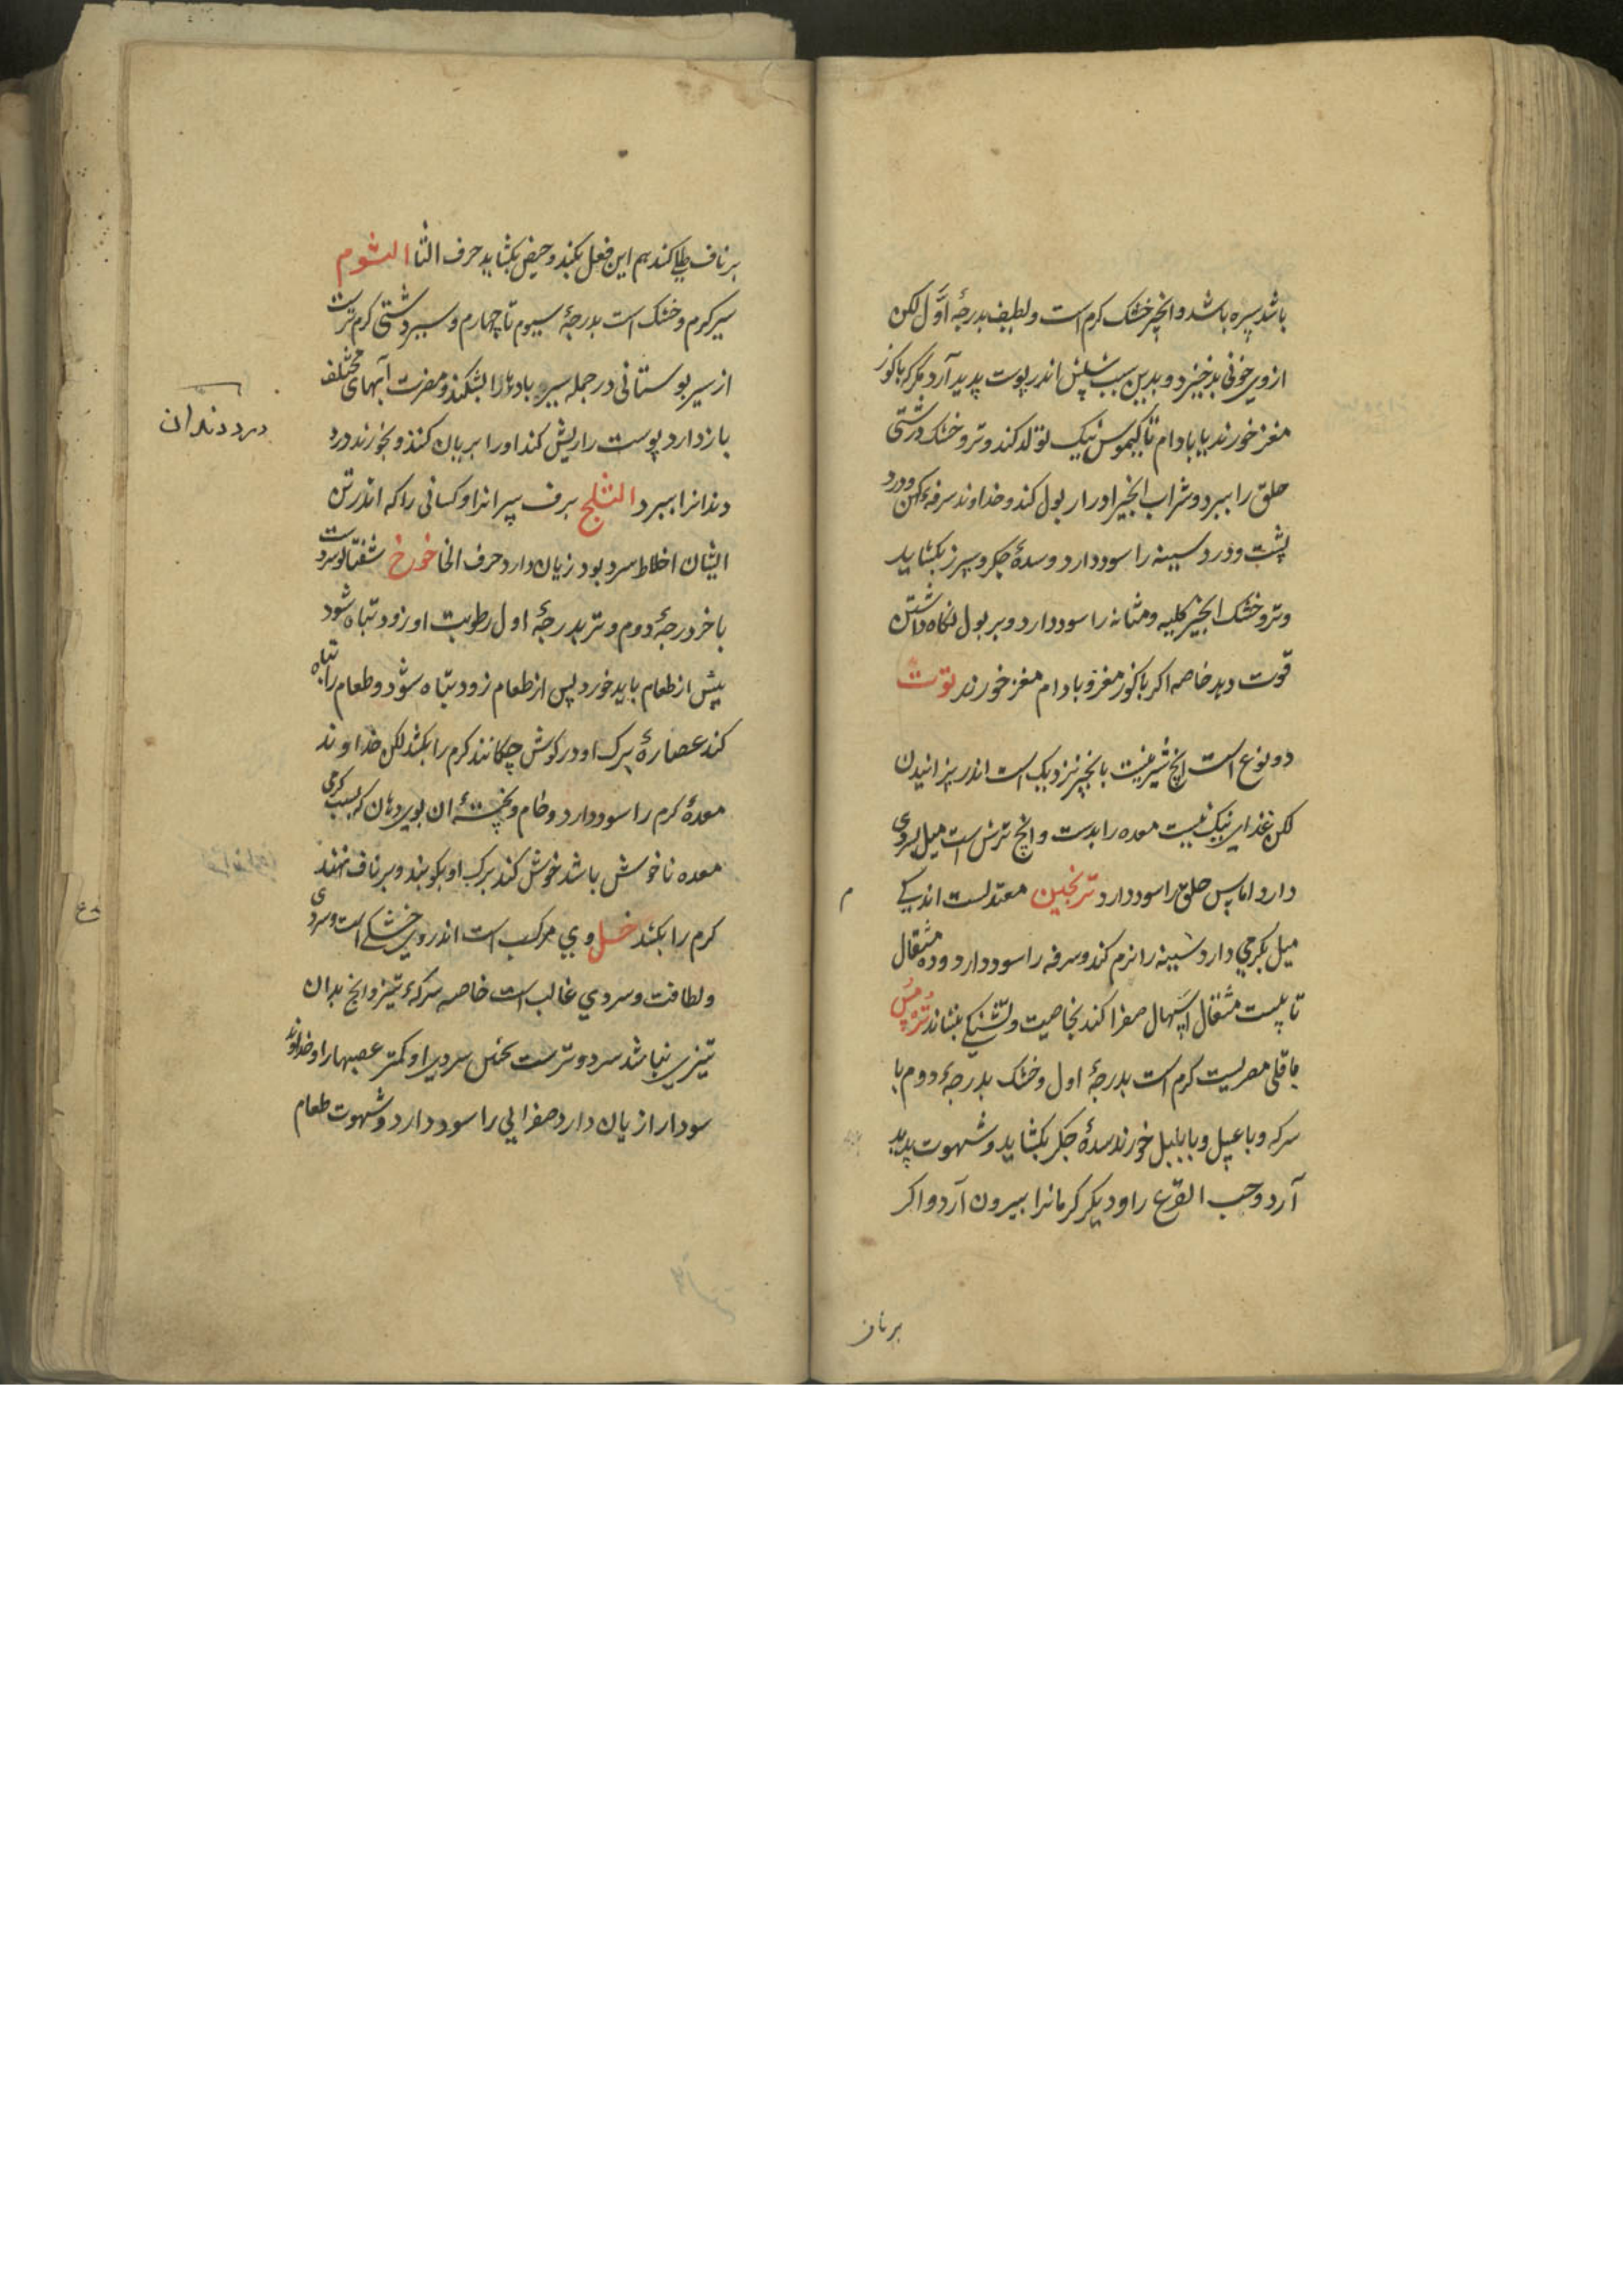 باشد سپره باشد وانجیر خشک کرم است ولطیف بدرجهٔ اوّل لکن
ازوی خونی بد خیزد وبدین سبب شپش اندر پوست پدید آرد مکر که باکوز
مغز خورند یا بادام تا کیموس نیک تولد کند وتر وخشک درشتی
حلق را ببرد وشراب انجیر ادرار بول کند وخداوند سرفهٔ کهن ودرد
پشت ودرد سینه را سود دارد وسدهٔ جکر وسپرز بکشاید
وتر وخشک انجیر کلیه ومثانه را سود دارد وبر بول نکاه داشتن
قوت دهد خاصه اکر باکوز مغز وبادام مغز خورند توت
دو نوع است انچ شیرینست بانجیر نزدیک است اندر پزانیدن
لکن غذای نیک نیست معده را بدست وانچ ترش است میل بسردی
دارد اماس حلق را سود دارد ترنجبین معتدلست اندکی
میل بکرمی دارد سینه را نرم کند وسرفه را سود دارد وده مثقال
تا بیست مثقال اسهال صفرا کند بخاصیت وتشنکی بنشاند تُرمُس
باقلی مصریست کرم است بدرجهٔ اول وخشک بدرجهٔ دوم با
سرکه وبا عسل وبا پلپل خورند سدهٔ جکر بکشاید وشهوت پدید
آرد وحب القرع را ودیکر کرمانرا بیرون آرد واکر
م
برناف
برناف طلی کنند هم این فعل بکند وحیض بکشاید حرف الثا الثوم
سیر کرم وخشک است بدرجهٔ سیوم تا چهارم وسیر دشتی کرم ترست
از سیر بوستانی در جمله سیر بادها را بشکند ومضرت آبهای مختلف
باز دارد پوست را ریش کند اورا بریان کنند وبخورند درد
دندانرا ببرد الثلج برف پیرانرا وکسانی را که اندر تن
ایشان اخلاط سرد بود زیان دارد حرف الخا خوخ شفتالو سردست
باخر درجهٔ دوم وتر بدرجهٔ اول رطوبت او زود تباه شود
پیش از طعام باید خورد پس از طعام زود تباه شود وطعام را تباه
کند عصارهٔ برک او در کوش چکانند کرم را بکشد لکن خداوند
معدهٔ کرم را سود دارد وخام وپختهٔ ان بوی دهان که بسبب کرمی
معده ناخوش باشد خوش کند برک او بکوبند وبرناف نهند
کرم را بکشد خل وی مرکب است اندر وی خشکی است وسردی
ولطافت وسردی غالب است خاصه سرکهٔ تیز وانچ بدان
تیزی نباشد سرد وترست لکن سردی او کمتر عصبها را وخداوند
سودا را زیان دارد صفرایی را سود دارد وشهوت طعام
درد دندان